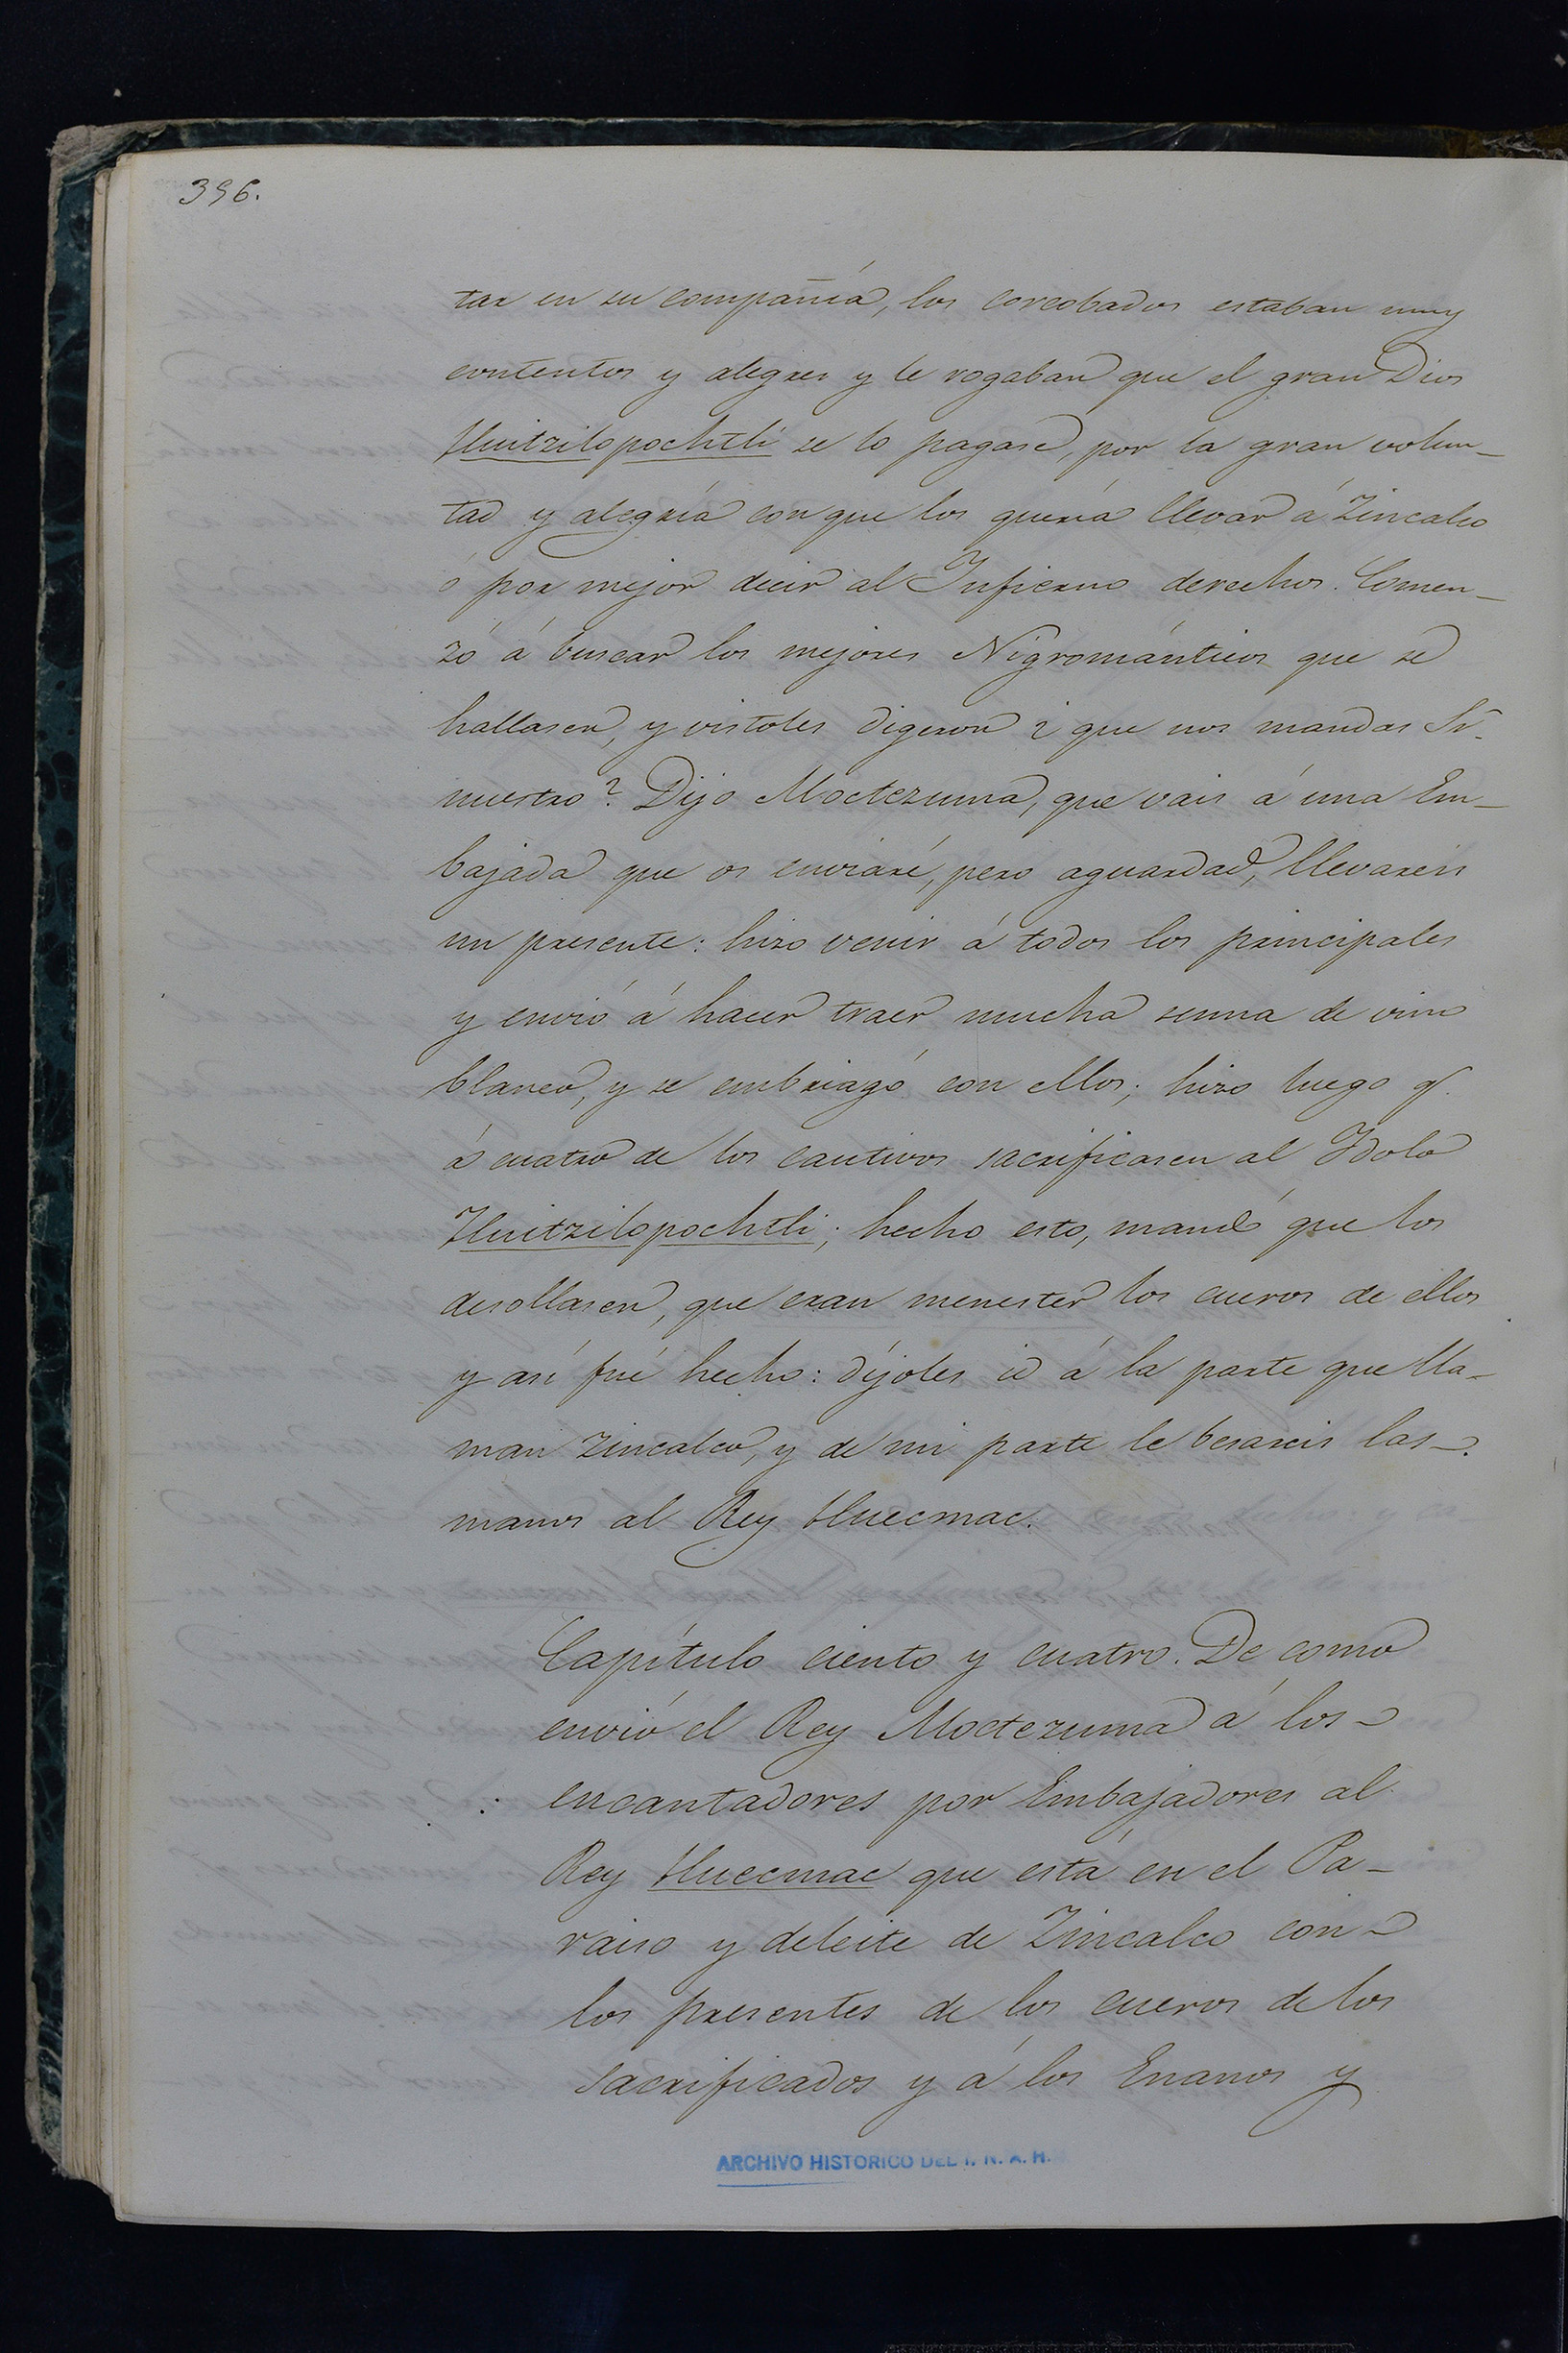 396.
tar en su compañía, los corcobados estaban muy
contentos y alegres y le rogaban que el gran Dios
Huitzilopochtli se lo pagase, por la gran volun-
tad y alegría con que los quería llevar á Zincalco
ó por mejor decir al Infierno derechos. Comen-
zó á buscar los mejores Nigrománticos que se
hallasen, y vistoles digeron ¿ que nos mandas Sr.
nuestro? Dijo Moctezuma, que vais á una Em-
bajada que os enviaré, pero aguardad, llevareis
un presente: hizo venir á todos los principales
y envió á hacer traer mucha suma de vino
blanco, y se embriagó con ellos; hizo luego q.
á cuatro de los cautivos sacrificasen al Idolo
Huitzilopochtli; hecho esto, mandó que los
desollasen, que eran menester los cueros de ellos
y así fué hecho: díjoles id á la parte que lla-
man Zincalco, y de mi parte le besareis las
manos al Rey Huecmac.
Capítulo ciento y cuatro. De como
envió el Rey Moctezuma á los
encantadores por Embajadores al
Rey Huecmac que está en el Pa-
raiso y deleite de Zincalco con
los presentes de los cueros de los
sacrificados y á los Enanos y
ARCHIVO HISTORICO DEL I. N. A. H.